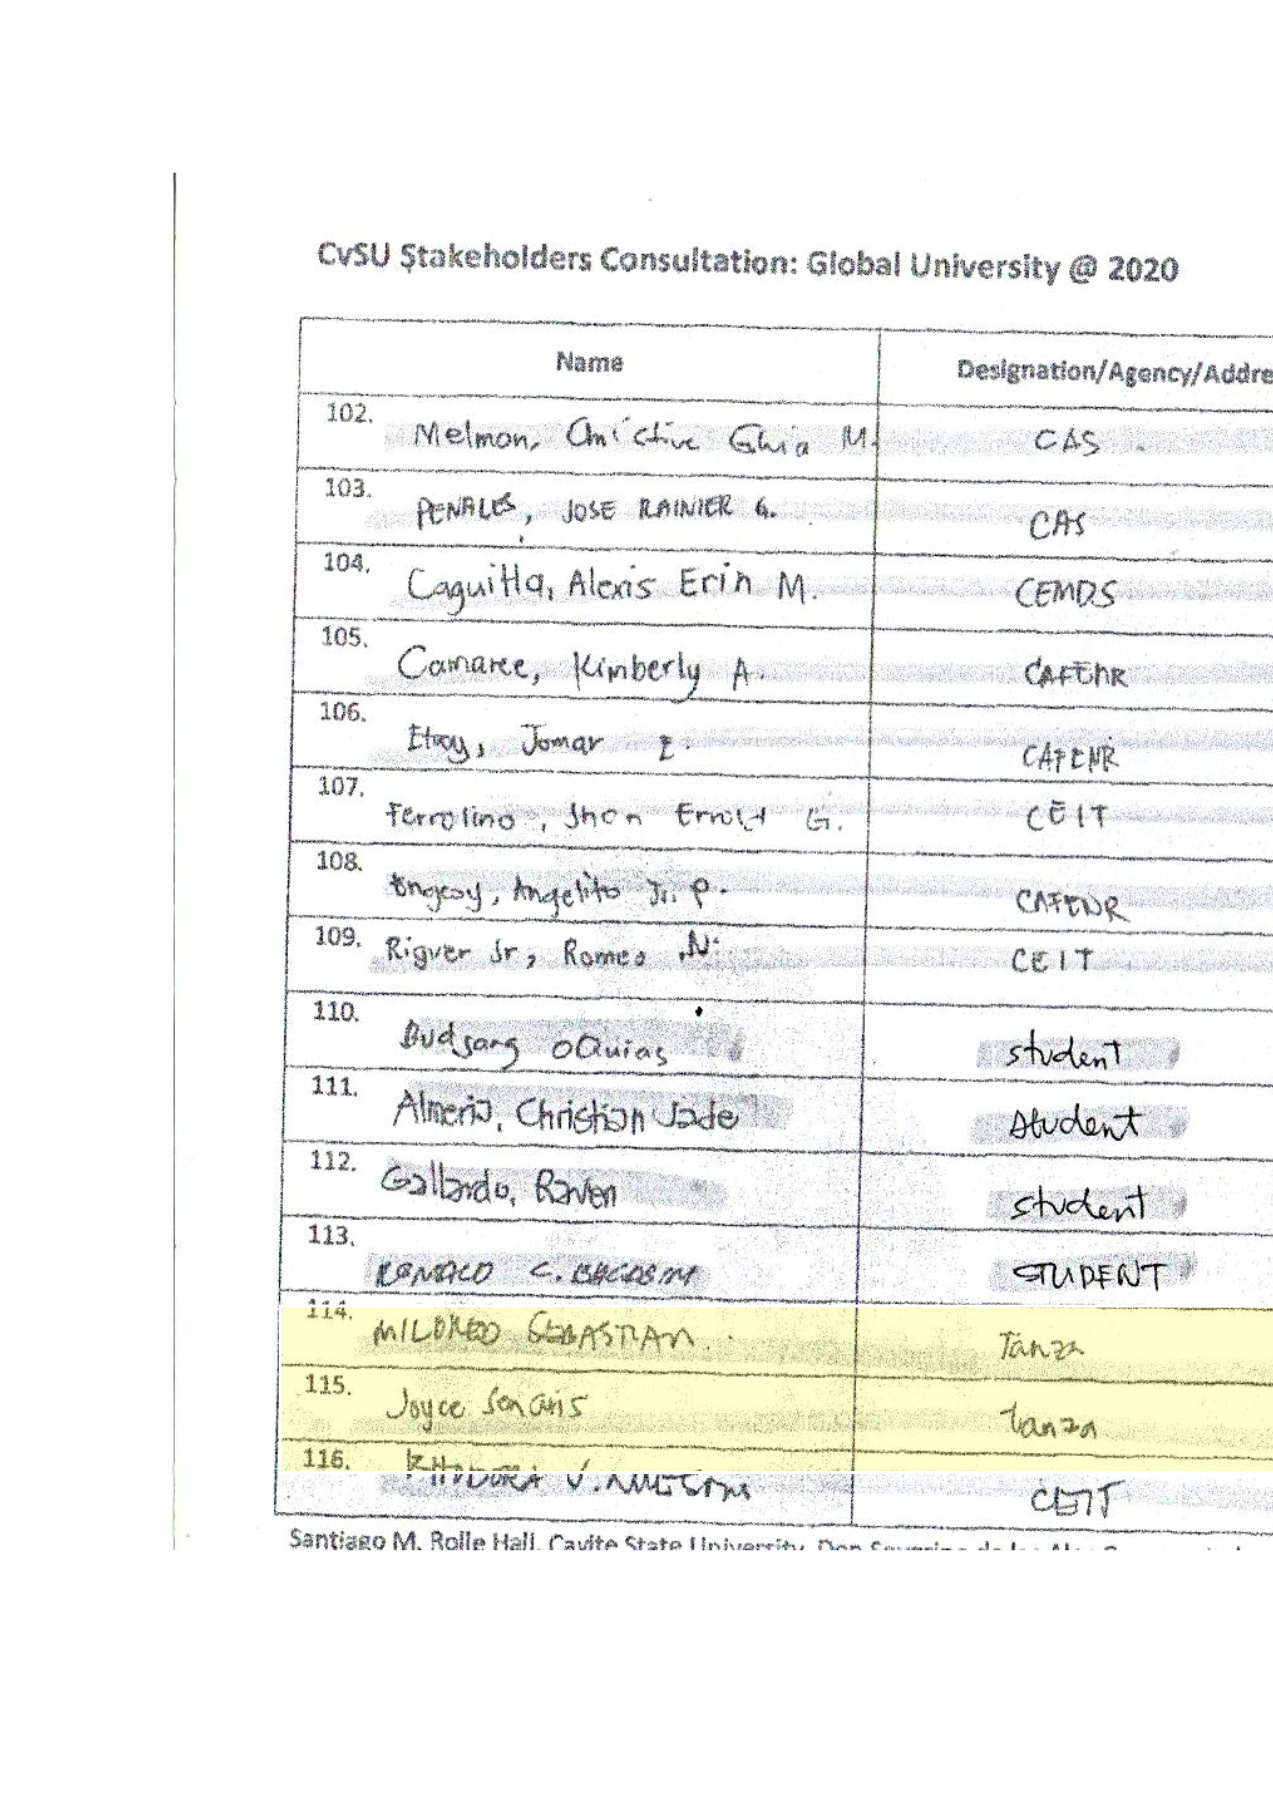 CvSU Stakeholders Consultation: Global University @ 2020
Name Designation/Agency/Addre
102. Melmon, Christine Ghia M. CAS
103. PENALES, JOSE RAINIER G. CAS
104. Caguitla, Alexis Erin M. CEMDS
105. Camaree, Kimberly A. CAFENR
106. Jomar CAFENR
107. Ferrolino, Jhon G. CEIT
108. Angelito Jr. P. CAFENR
109. Riguer Jr, Romeo N. CEIT
110. student
111. Almerio, Christian Jade student
112. Gallardo, Raven student
113. C. STUDENT
114. MILDRED SEBASTIAN Tanza
115. Joyce Tanza
116. V. CEIT
Santiago M. Rolle Hall, Cavite State University, Don Severino de las Alas